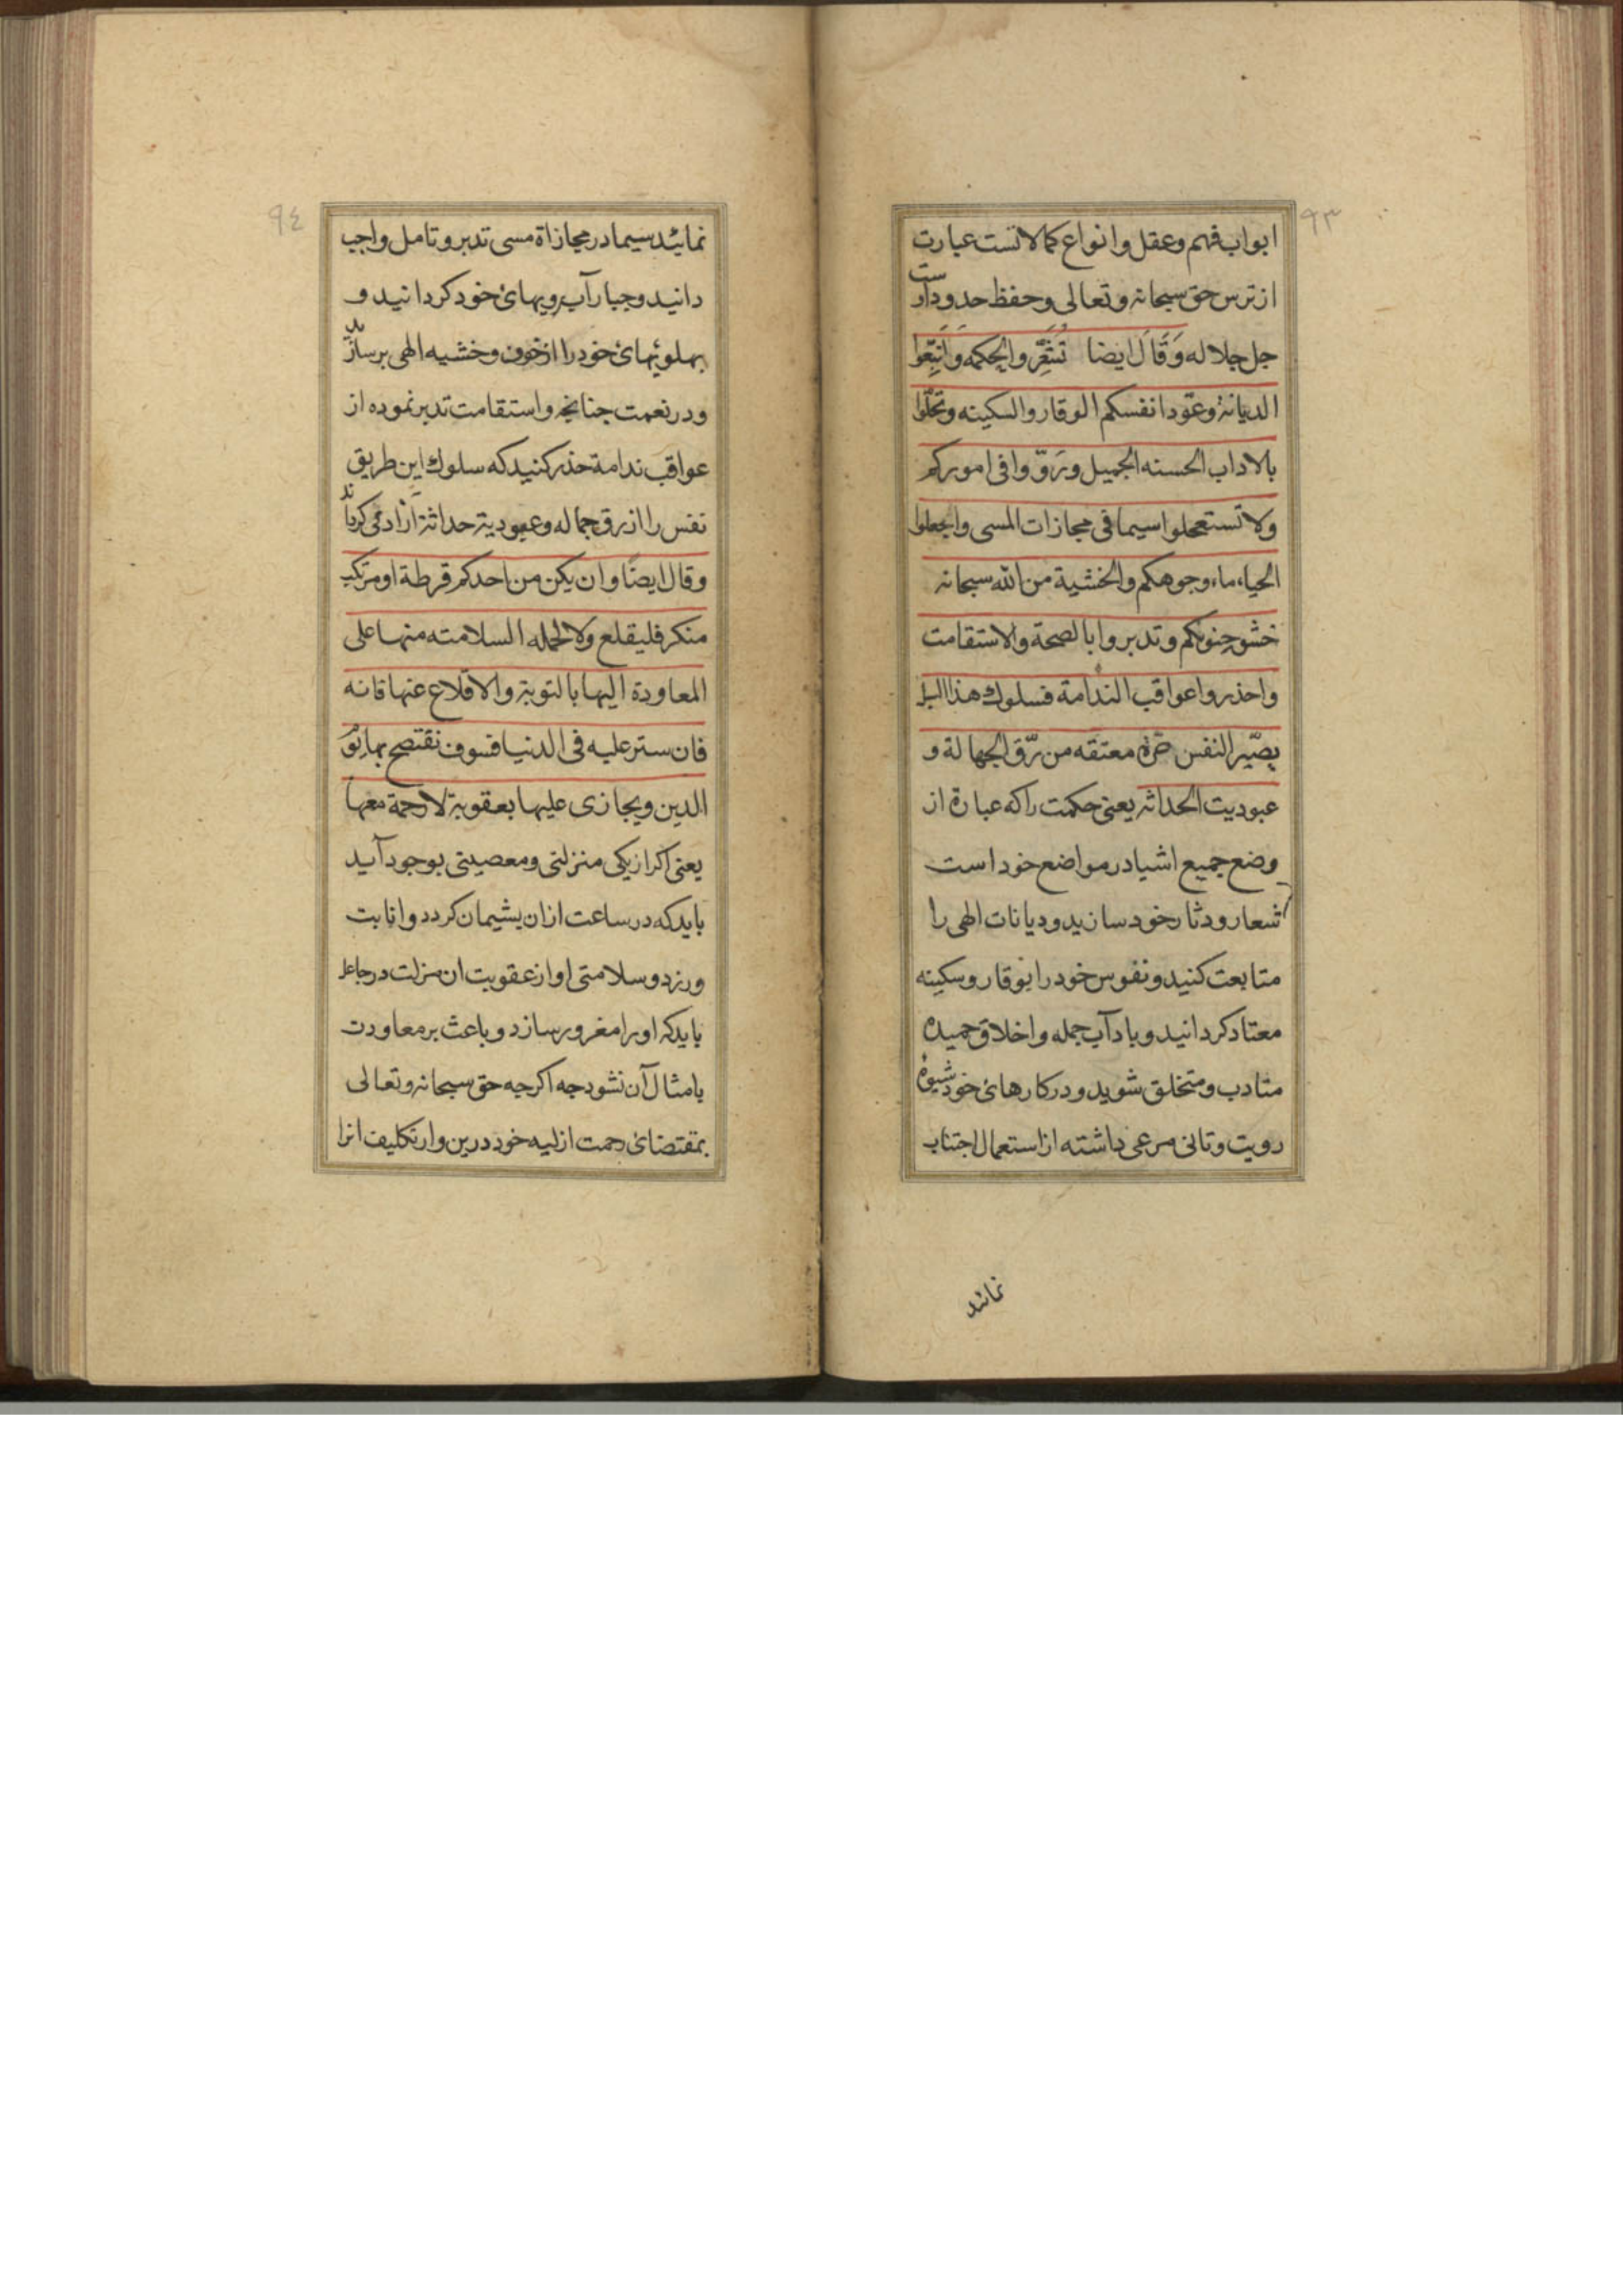 ٩٣
ابواب فهم وعقل وانواع کمالاتست عبارت
از ترس حق سبحانه وتعالی وحفظ حدود اوست
جل جلاله وَقَالَ ایضا والحکمه وَاتبِّعُوا
الدیانة وعوّدا نفسکم الوقار والسکینه وتحلّوا
بالاداب الحسنه الجمیل ورَوّوا فی امورکم
ولا تستعجلوا سیما فی مجازات المسی واجعلوا
الحیاء ماء وجوهکم والخشیة من الله سبحانه
حشو جنوبکم وتدبروا بالصحة والاستقامت
واحذروا عواقب الندامة فسلوك هذا
یصّیر النفس حرة معتقه من رّق الجهالة و
عبودیت الحداثه یعنی حکمت راکه عبارة از
وضع جمیع اشیا در مواضع خود است
شعار ودثار خود سازید ودیانات الهی را
متابعت کنید ونفوس خود را بوقار وسکینه
معتاد کردانید وبادآب جمله واخلاق حمیده
متادب ومتخلق شوید ودر کارهای خود شیوهٔ
رویت وتانی مرعی داشته از استعمال اجتناب
نمائید
٩٤
نمائید سیما در مجازاة مسی تدبر وتامل واجب
دانید وحیا رآب رویهای خود کردانید و
پهلویهای خود را از خوف وخشیه الهی بر سازید
ودر نعمت جنانچه واستقامت تدبر نموده از
عواقب ندامة حذر کنید که سلوك این طریق
نفس را از رق جماله وعبودیة حداثة آزاد می کرداند
وقال ایضًا وان یکن من احدکم قرطة او مرتکب
منکر فلیقلع ولا لحمله السلامته منها علی
المعاودة الیها بالتوبة والاقلاع عنها فانه
فان ستر علیه فی الدنیا فسوف نقتضح بها یوم
الدین ویجازی علیها بعقوبة لا رحمة معها
یعنی اکر از یکی منزلتی ومعصیتی بوجود آید
باید که در ساعت ازان پشیمان کردد وانابت
ورزد وسلامتی او از عقوبت ان مزلت در
باید که اورا مغرور سازد وباعث بر معاودت
یا مثال آن نشود جه اکرجه حق سبحانه وتعالی
بمقتضای رحمت ازلیه خود درین وار تکلیف انرا